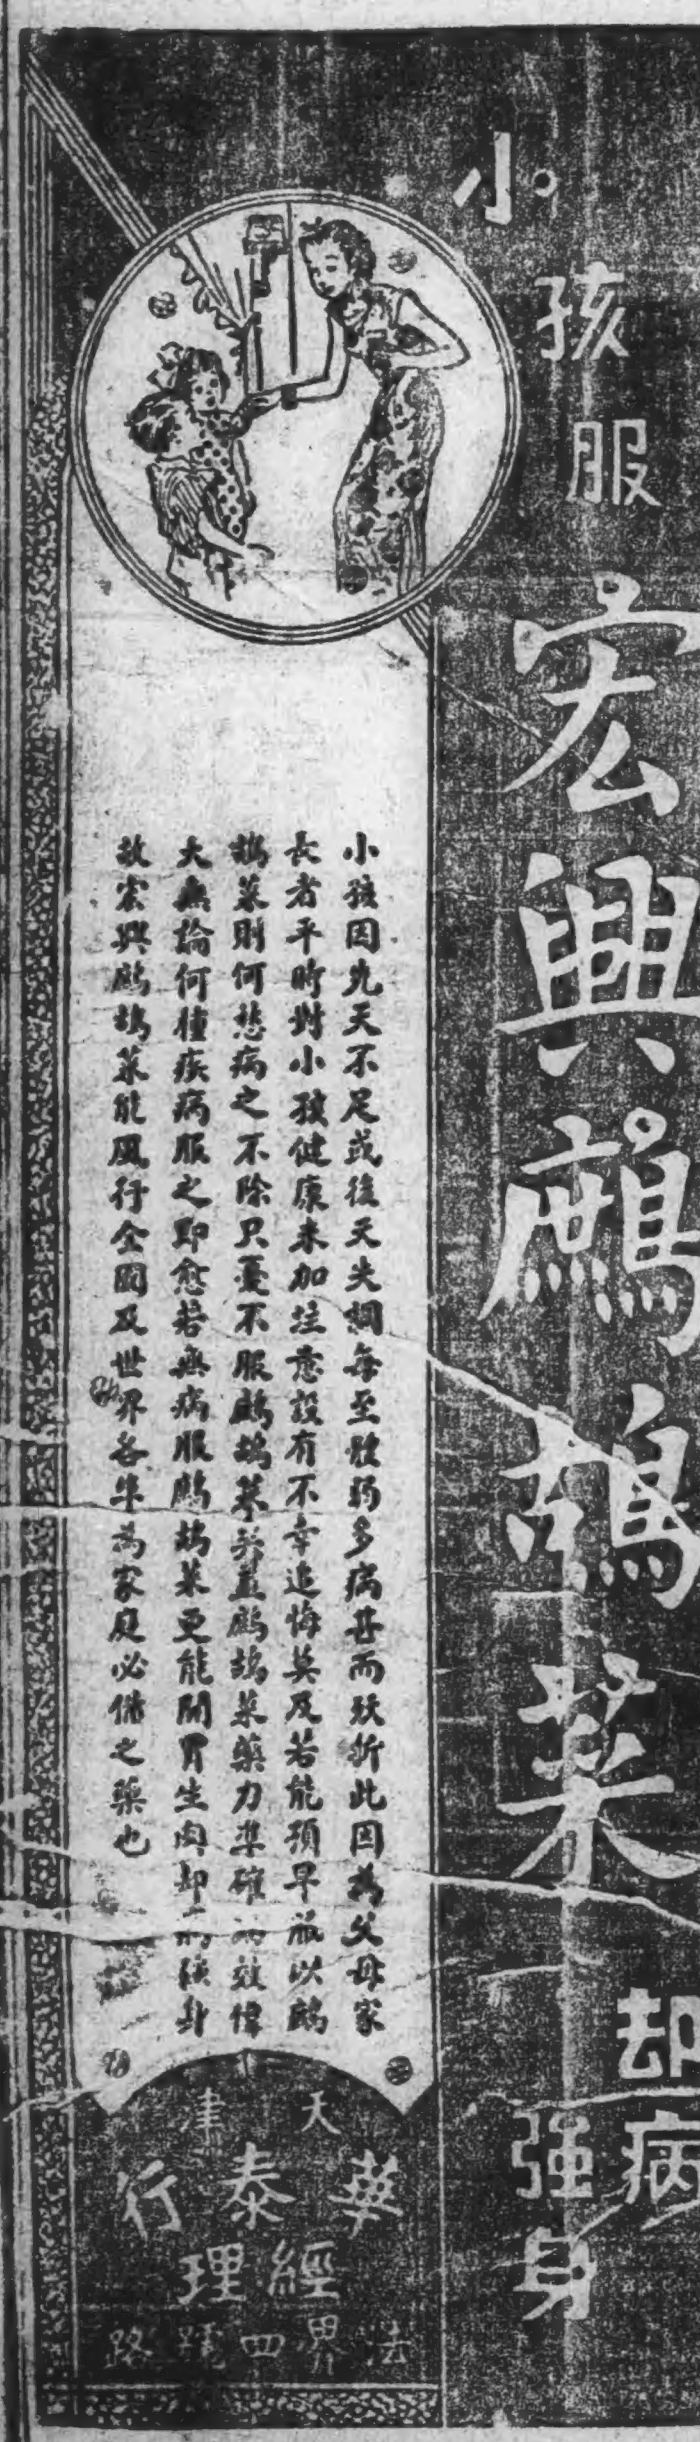 小孩服
宏興鷓鴣菜
却病
强身
小孩因先天不足或後天失調每至體弱多病甚而殀折此因為父母家
長者平時對小孩健康未加注意設有不幸追悔莫及若能預早服以鷓
鴣菜則何愁病之不除只憂不服鷓鴣菜并蓋鷓鴣菜藥力準確效偉
大無論何種疾病服之即愈若無病服鷓鴣菜更能開胃生肉却病强身
故宏興鷓鴣菜能風行全國及世界各牟為家庭必備之藥也
天津
華泰行
經理
法界四號路